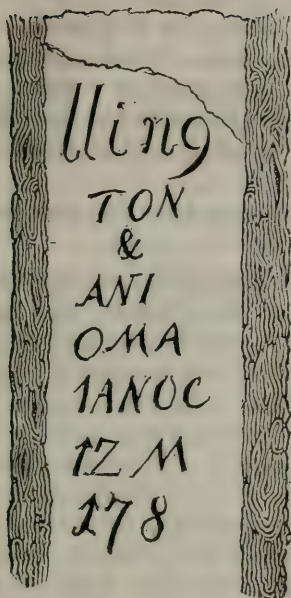 lling
TON
&
ANI
OMA
1ANOC
1Z M
178